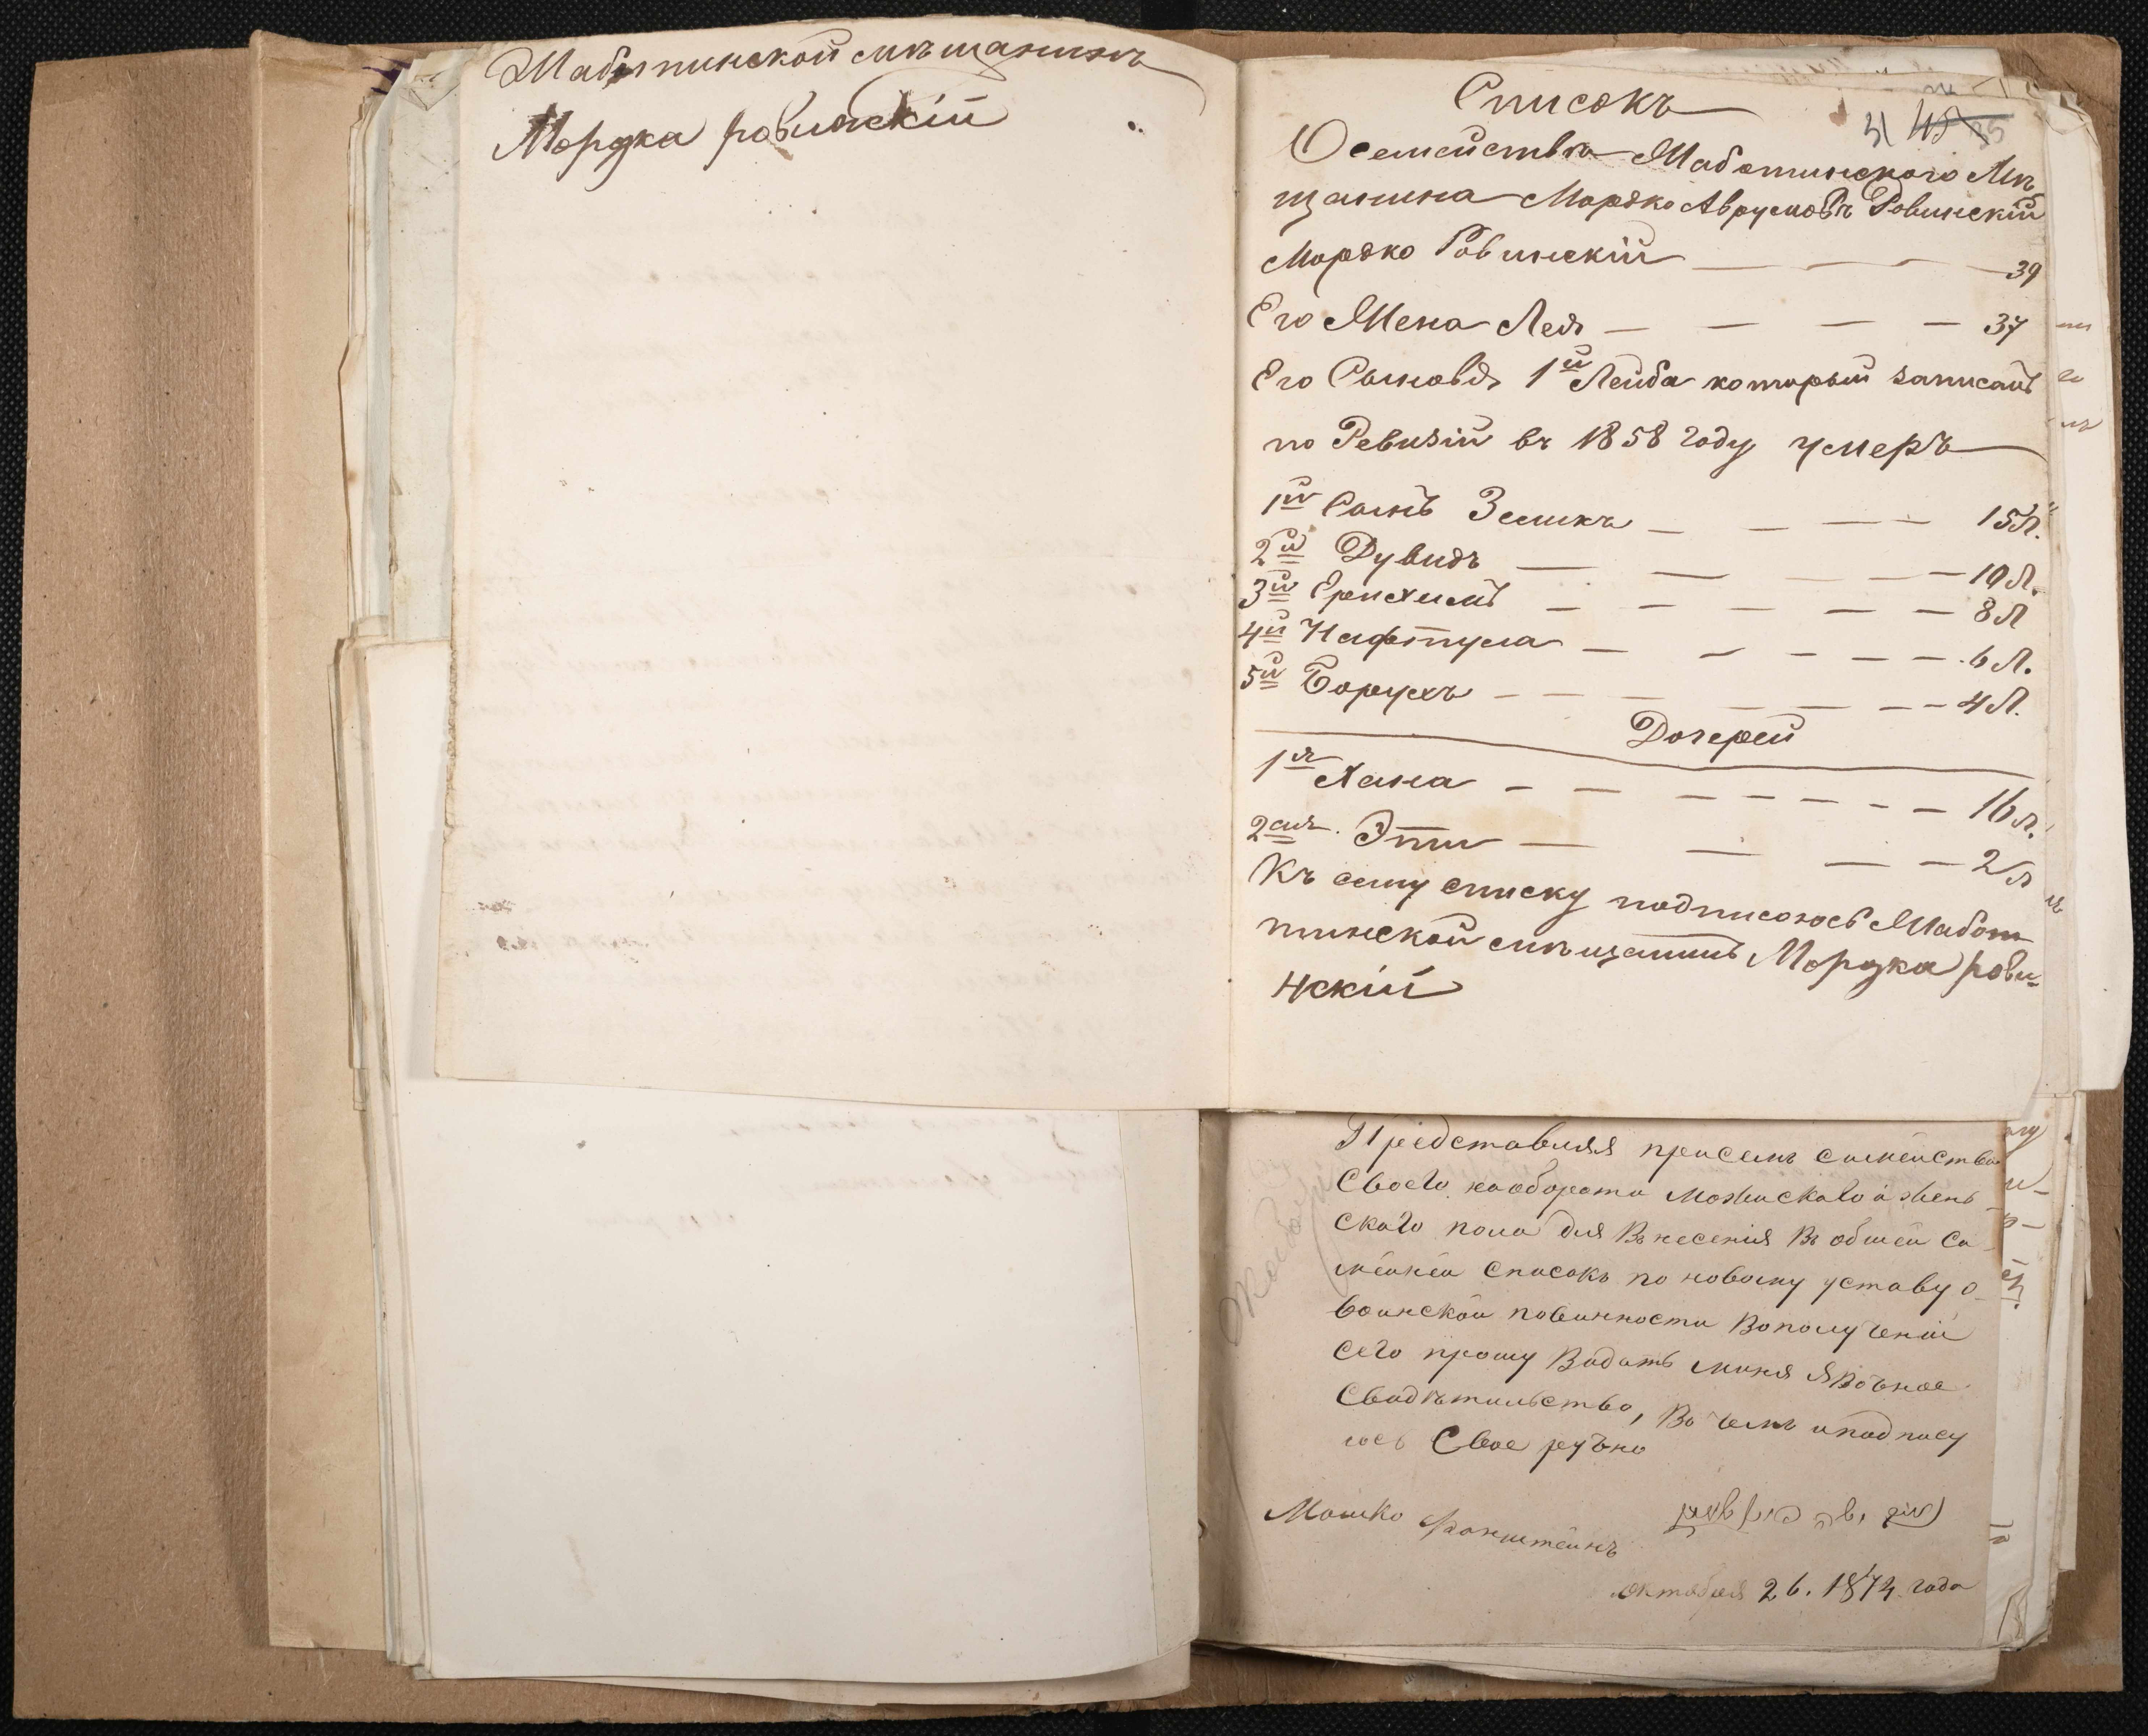 Жаботинской мѣщанинъ
Мордка ровинскій
Списокъ
31 45 35
О семействѣ Жаботинского Мѣ-
щанина Мордко Аврумовъ Ровинскій
Мордко Ровинскій — — — 39
Его Жена Лея — — — — 37
Его Сыновья 1й Лейба который записанъ
по Ревизіи въ 1858 году умеръ
1й Сынъ Зеликъ — — — — 15 Л.
2й Дувидъ — — — — 10 Л.
3й Ерихимъ — — — — — 8 Л
4й Нафтула — — — — — 6 Л.
5й Борухъ — — — — — — 4 Л.
Дочерей
1я Хана — — — — — — — — 16 л.
2ая Эти — — — — 2 л
Къ сему списку подписоюсь Жабот
тинской мѣщанинъ Мордка рови-
нскій
Представляя присемъ симейства
Своего наоборота можискаго и жень
скаго пола для Внесенія Въ общей Са
мейней списокъ по новому уставу о
воинской повинности Вополученіи
сего прошу Видать миня Явочное
Свидѣтильство, Во чемъ иподпису
юсь Свое ручно
Мошко Фанштейнъ
Октября 26. 1874 года